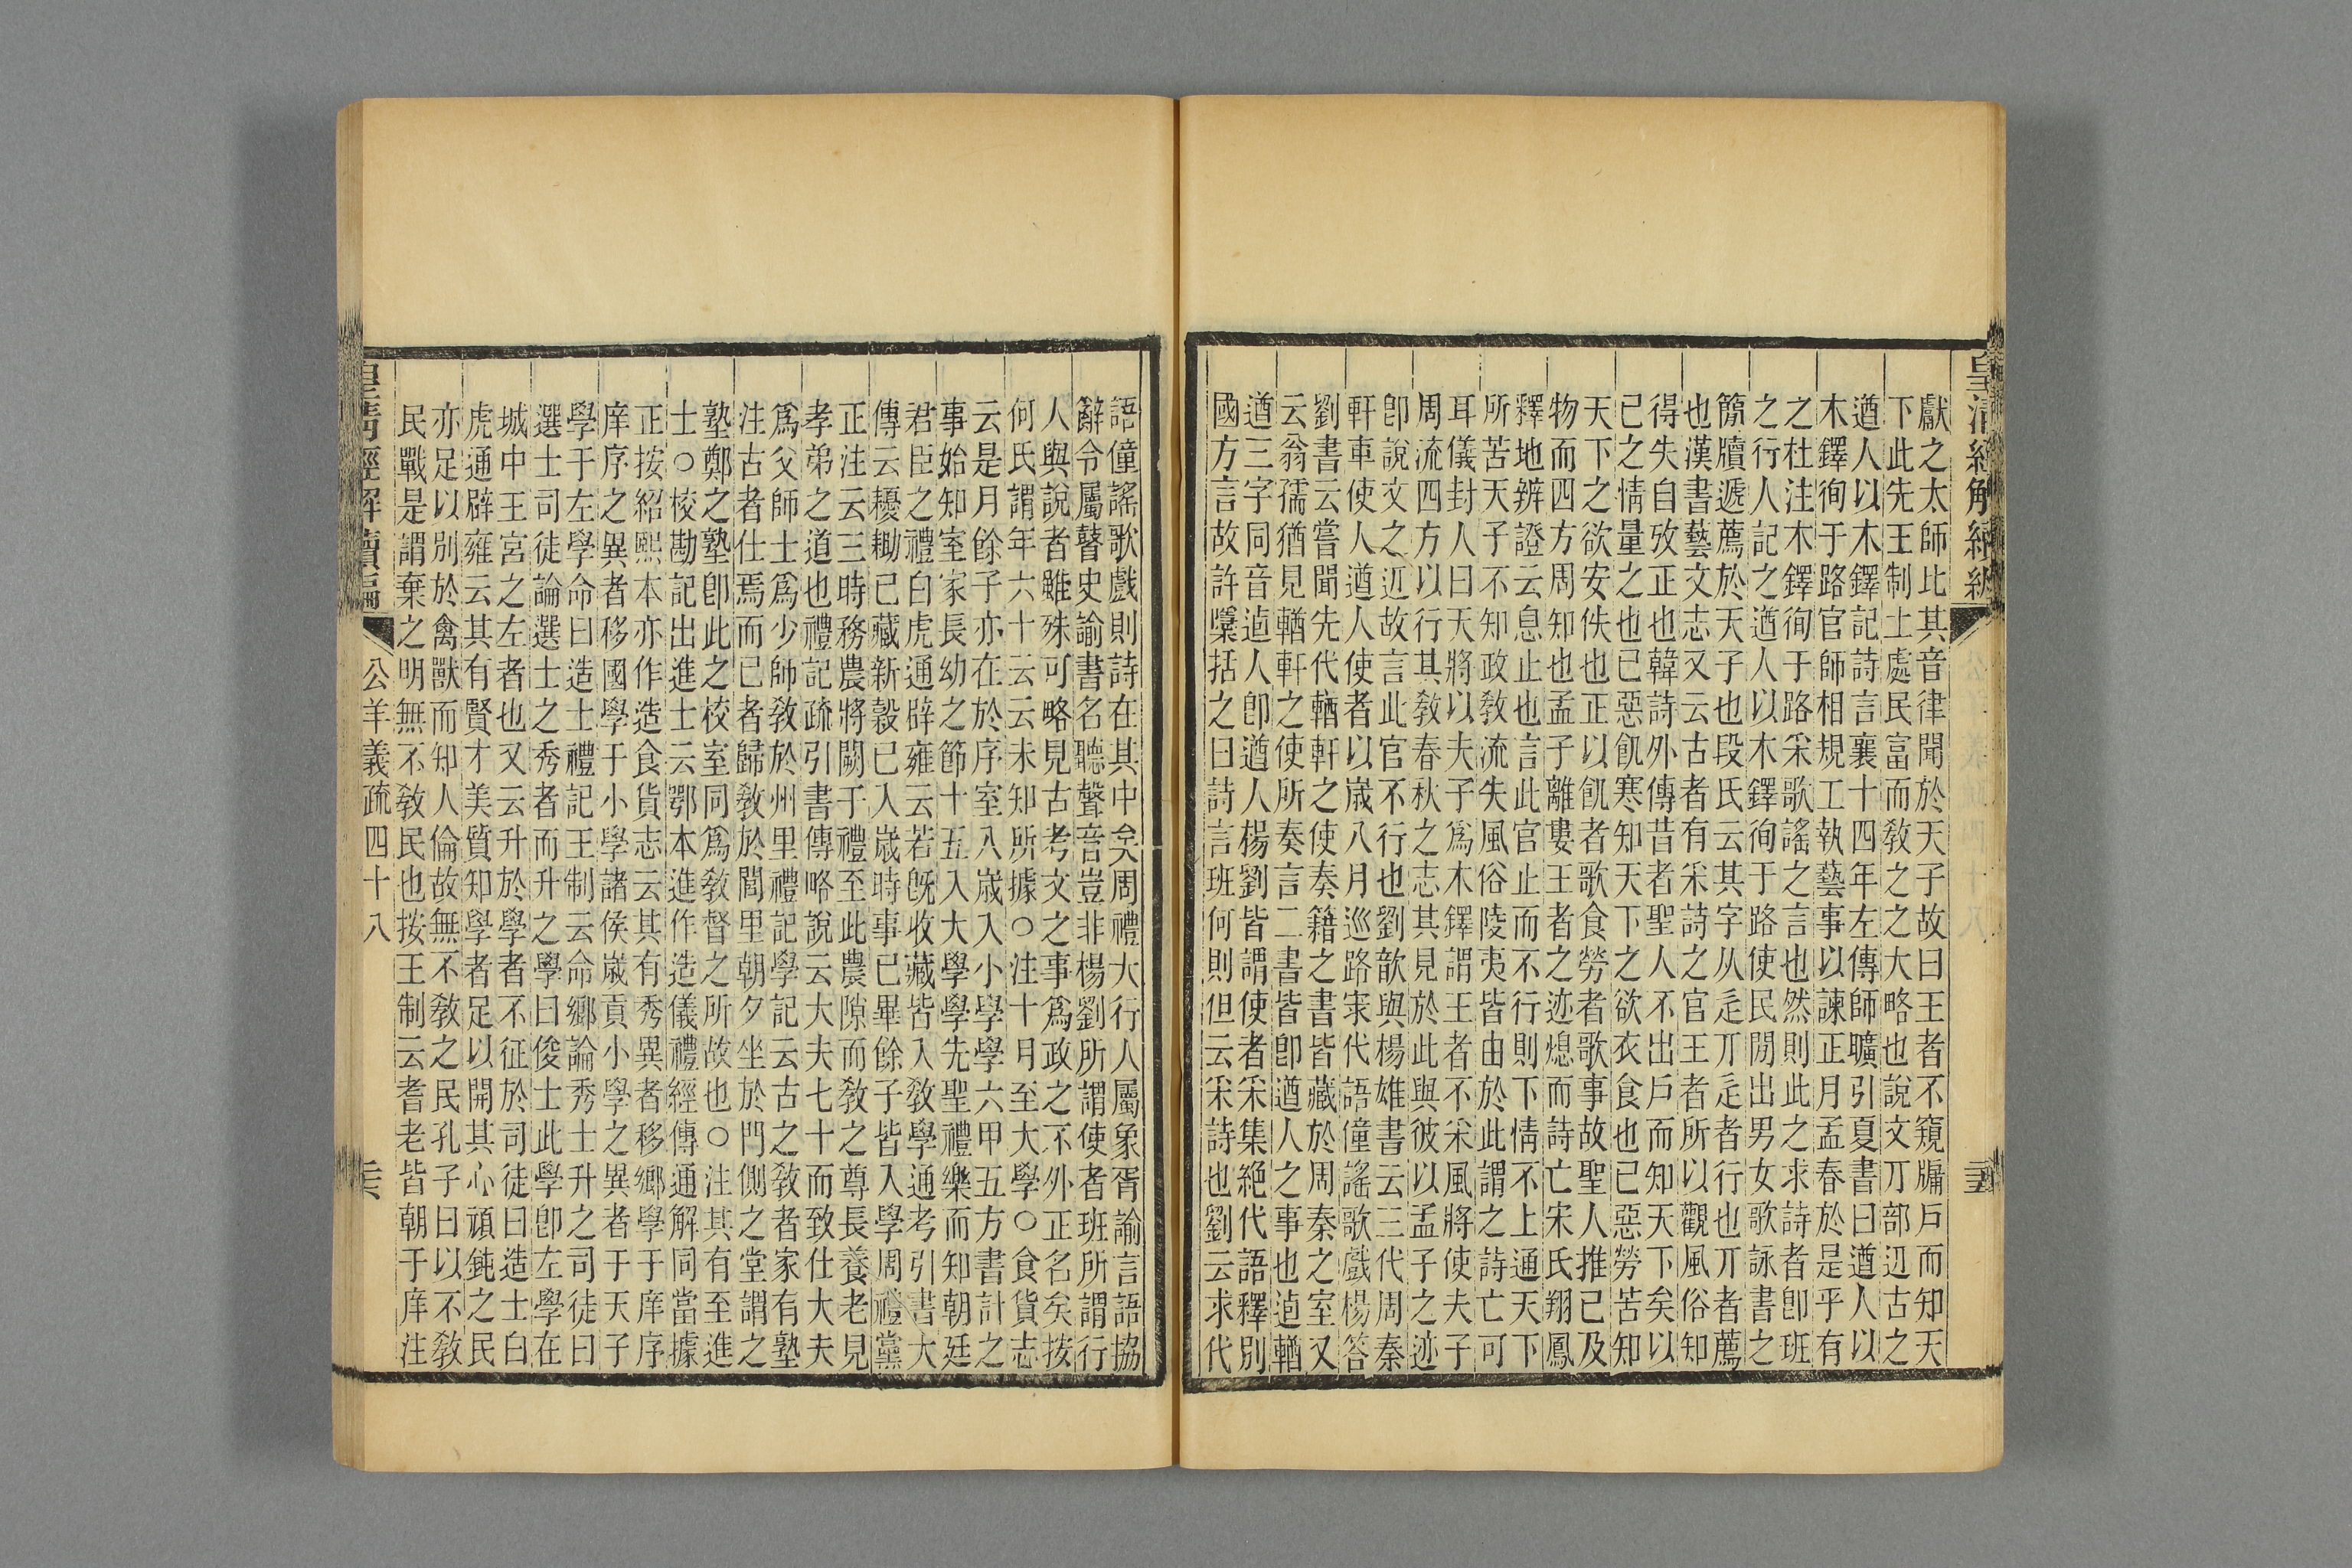 皇清經解續編
獻之太師比其音律聞於天子故曰王者不窺牖戶而知天
下此先王制土處民富而敎之之大略也說文丌部辺古之
遒人以木鐸記詩言襄十四年左傳師曠引夏書曰遒人以
木鐸徇于路官師相規工執藝事以諫正月孟春於是乎有
之杜注木鐸徇于路采歌謠之言也然則此之求詩者卽班
之行人記之遒人以木鐸徇于路使民閒出男女歌詠書之
簡牘遞薦於天子也段氏云其字从辵丌辵者行也丌者薦
也漢書藝文志又云古者有采詩之官王者所以觀風俗知
得失自攷正也韓詩外傳昔者聖人不出戶而知天下矣以
已之情量之也已惡飢寒知天下之欲衣食也已惡勞苦知
天下之欲安佚也正以飢者歌食勞者歌事故聖人推已及
物而四方周知也孟子離婁王者之迹熄而詩亡宋氏翔鳳
釋地辨證云息止也言此官止而不行則下情不上通天下
所苦天子不知政敎流失風俗陵夷皆由於此謂之詩亡可
耳儀封人曰天將以夫子爲木鐸謂王者不采風將使夫子
周流四方以行其敎春秋之志其見於此與彼以孟子之迹
卽說文之辺故言此官不行也劉歆與楊雄書云三代周秦
軒車使人遒人使者以歲八月巡路宷代語僮謠歌戲楊答
劉書云嘗聞先代輶軒之使奏籍之書皆藏於周秦之室又
云翁孺猶見輶軒之使所奏言二書皆卽遒人之事也逌輶
遒三字同音逌人卽遒人楊劉皆謂使者采集絕代語釋別
國方言故許檃括之曰詩言班何則但云采詩也劉云求代
語僮謠歌戲則詩在其中矣周禮大行人屬象胥諭言語協
辭令屬瞽史諭書名聽聲音豈非楊劉所謂使者班所謂行
人與說者雖殊可略見古考文之事爲政之不外正名矣按
何氏謂年六十云云未知所據○注十月至大學○食貨志
云是月餘子亦在於序室八歲入小學學六甲五方書計之
事始知室家長幼之節十五入大學學先聖禮樂而知朝廷
君臣之禮白虎通辟雍云若旣收藏皆入敎學通考引書大
傳云耰耡已藏新穀已入歲時事已畢餘子皆入學周禮黨
正注云三時務農將闕于禮至此農隙而敎之尊長養老見
孝弟之道也禮記疏引書傳略說云大夫七十而致仕大夫
爲父師士爲少師敎於州里禮記學記云古之敎者家有塾
注古者仕焉而已者歸敎於閭里朝夕坐於門側之堂謂之
塾鄭之塾卽此之校室同爲敎督之所故也○注其有至進
士○校勘記出進士云鄂本進作造儀禮經傳通解同當據
正按紹熙本亦作造食貨志云其有秀異者移鄉學于庠序
庠序之異者移國學于小學諸侯歲貢小學之異者于天子
學于左學命曰造士禮記王制云命鄉論秀士升之司徒曰
選士司徒論選士之秀者而升之學曰俊士此學卽左學在
城中王宮之左者也又云升於學者不征於司徒曰造士白
虎通辟雍云其有賢才美質知學者足以開其心頑鈍之民
亦足以別於禽獸而知人倫故無不敎之民孔子曰以不敎
民戰是謂棄之明無不敎民也按王制云耆老皆朝于庠注
皇清經解續編 公羊義疏四十八